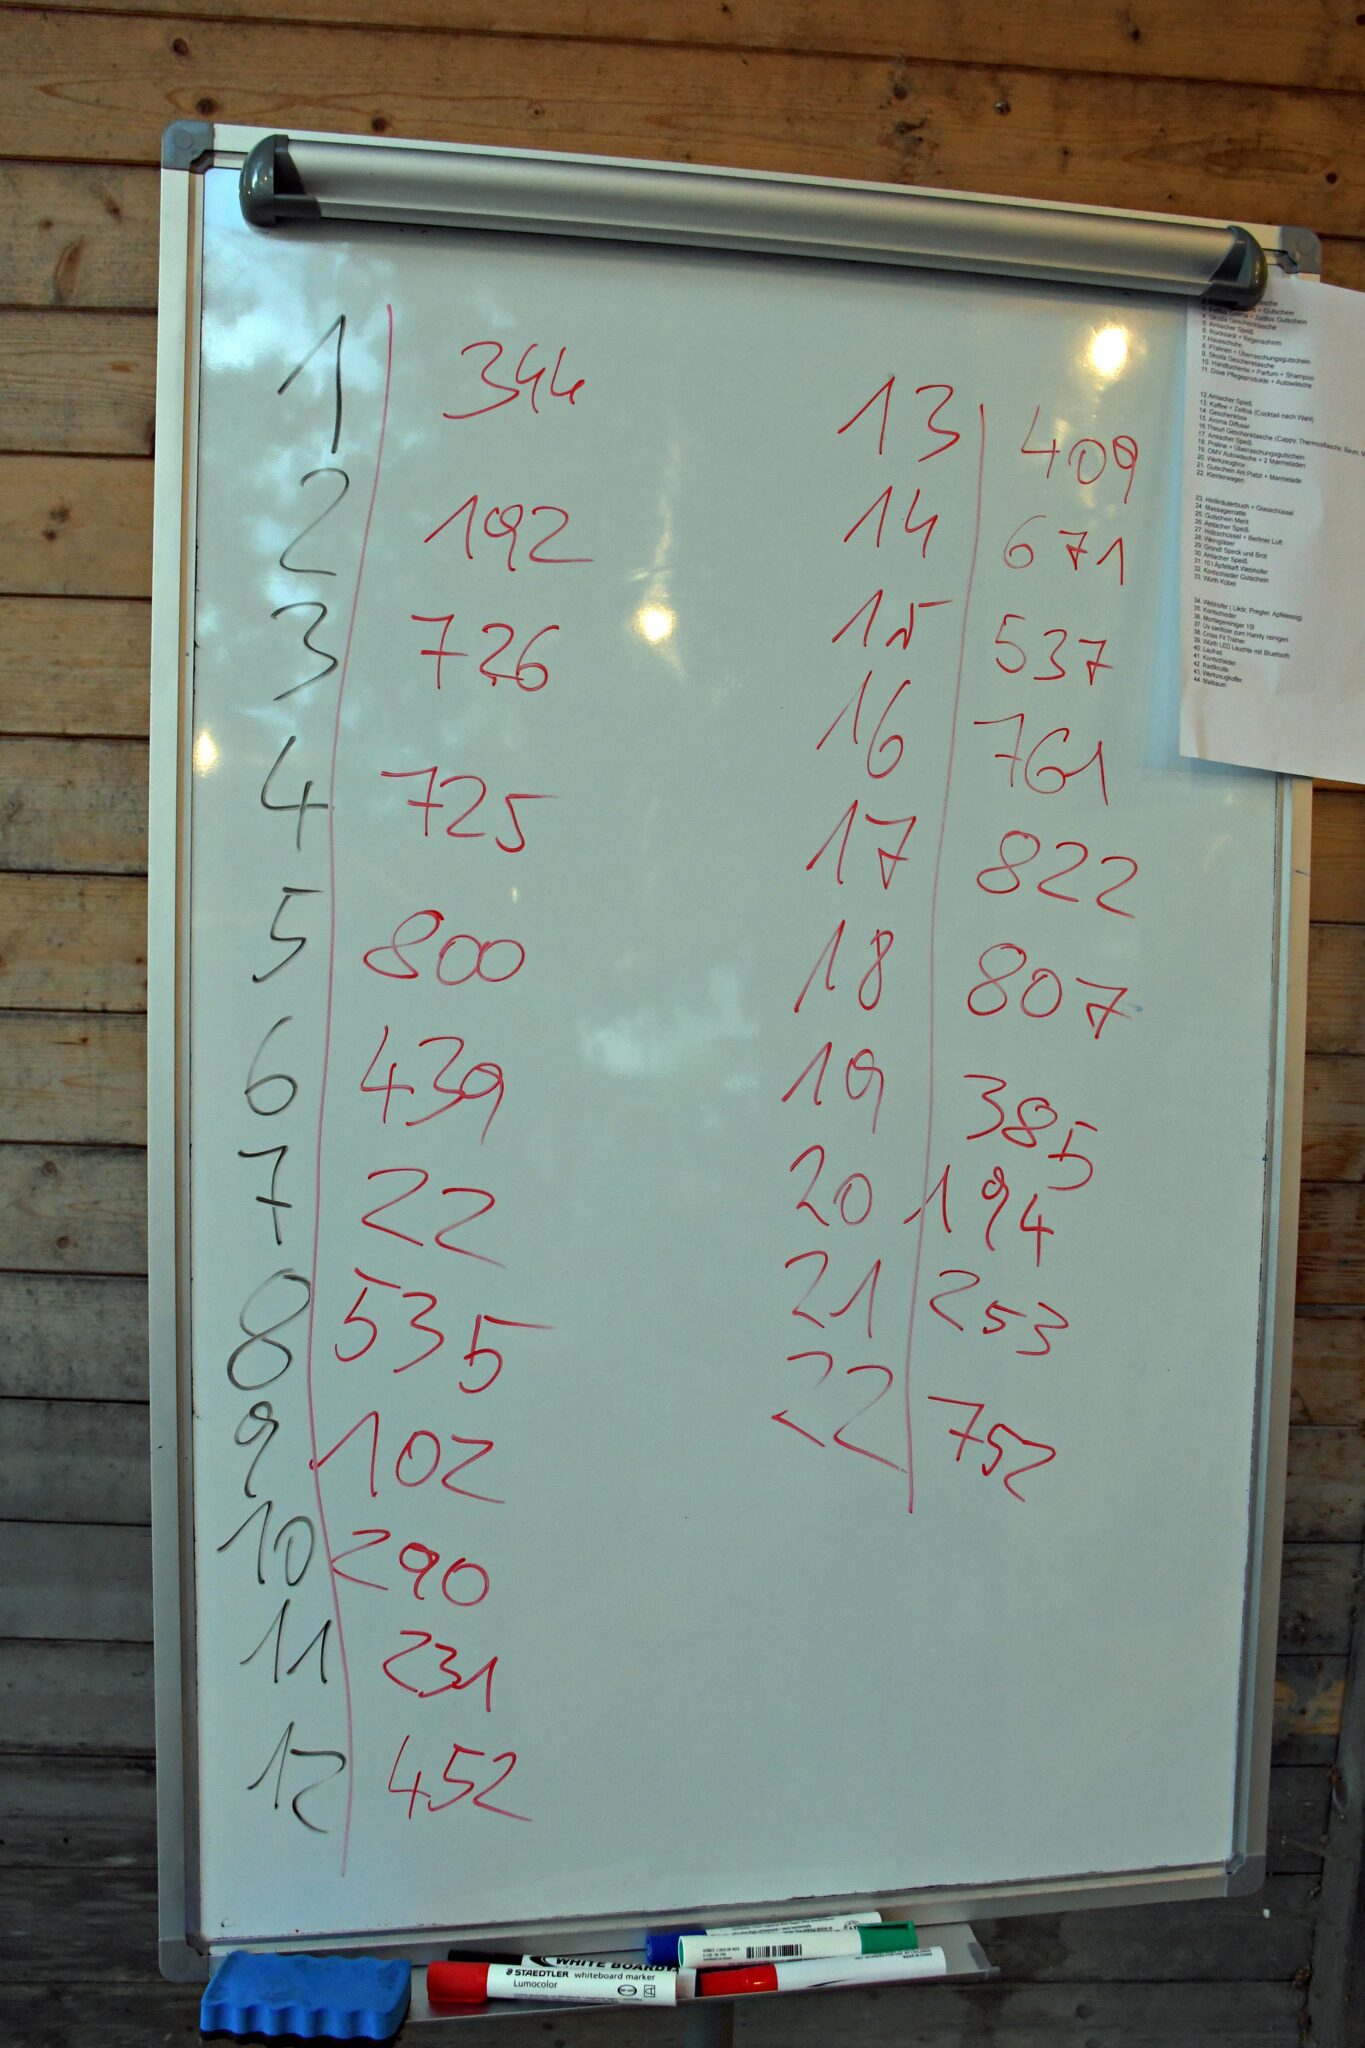 1 344
2 192
3 726
4 725
5 800
6 439
7 22
8 535
9 102
10 290
11 231
12 452
13 409
14 671
15 537
16 761
17 822
18 807
19 385
20 194
21 253
22 752
+ Gutschein
+ Zeitlos Gutschein
4. Skoda Geschenktasche
5. Amlacher Speiß
6. Rucksack + Regenschirm
7. Hausschuhe
8. Pralinen + Überraschungsgutschein
9. Skoda Geschenktasche
10. Handtuchente + Parfum + Shampoo
11. Dove Pflegeprodukte + Autowäsche
12. Amlacher Speiß
13. Kaffee + Zeitlos (Cocktail nach Wahl)
14. Geschenkbox
15. Aroma Diffuser
16. Theurl Geschenktasche (Cappy, Thermosflasche, Baum,
17. Amlacher Speiß
18. Praline + Überraschungsgutschein
19. OMV Autowäsche + 2 Marmeladen
20. Werkzeugbox
21. Gutschein Am Platzl + Marmelade
22. Kleiderwagen
23. Heilkräuterbuch + Glasschüssel
24. Massagematte
25. Gutschein Merli
26. Amlacher Speiß
27. Holzschüssel + Berliner Luft
28. Weingläser
29. Grandl Speck und Brot
30. Amlacher Speiß
31. 10 l Apfelsaft Webhofer
32. Kontschieder Gutschein
33. Würth Kübel
34. Webhofer ( Likör, Pregler, Apfelessig)
35. Kontschieder
36. Montagereiniger 10l
37. Uv sanitizer zum Handy reinigen
38. Cross Fit Trainer
39. Würth LED Leuchte mit Bluetooth
40. Laufrad
41. Kontschieder
42. Radlkutte
43. Werkzeugkoffer
44. Maibaum
WHITE BOARD
STAEDTLER whiteboard marker
Lumocolor